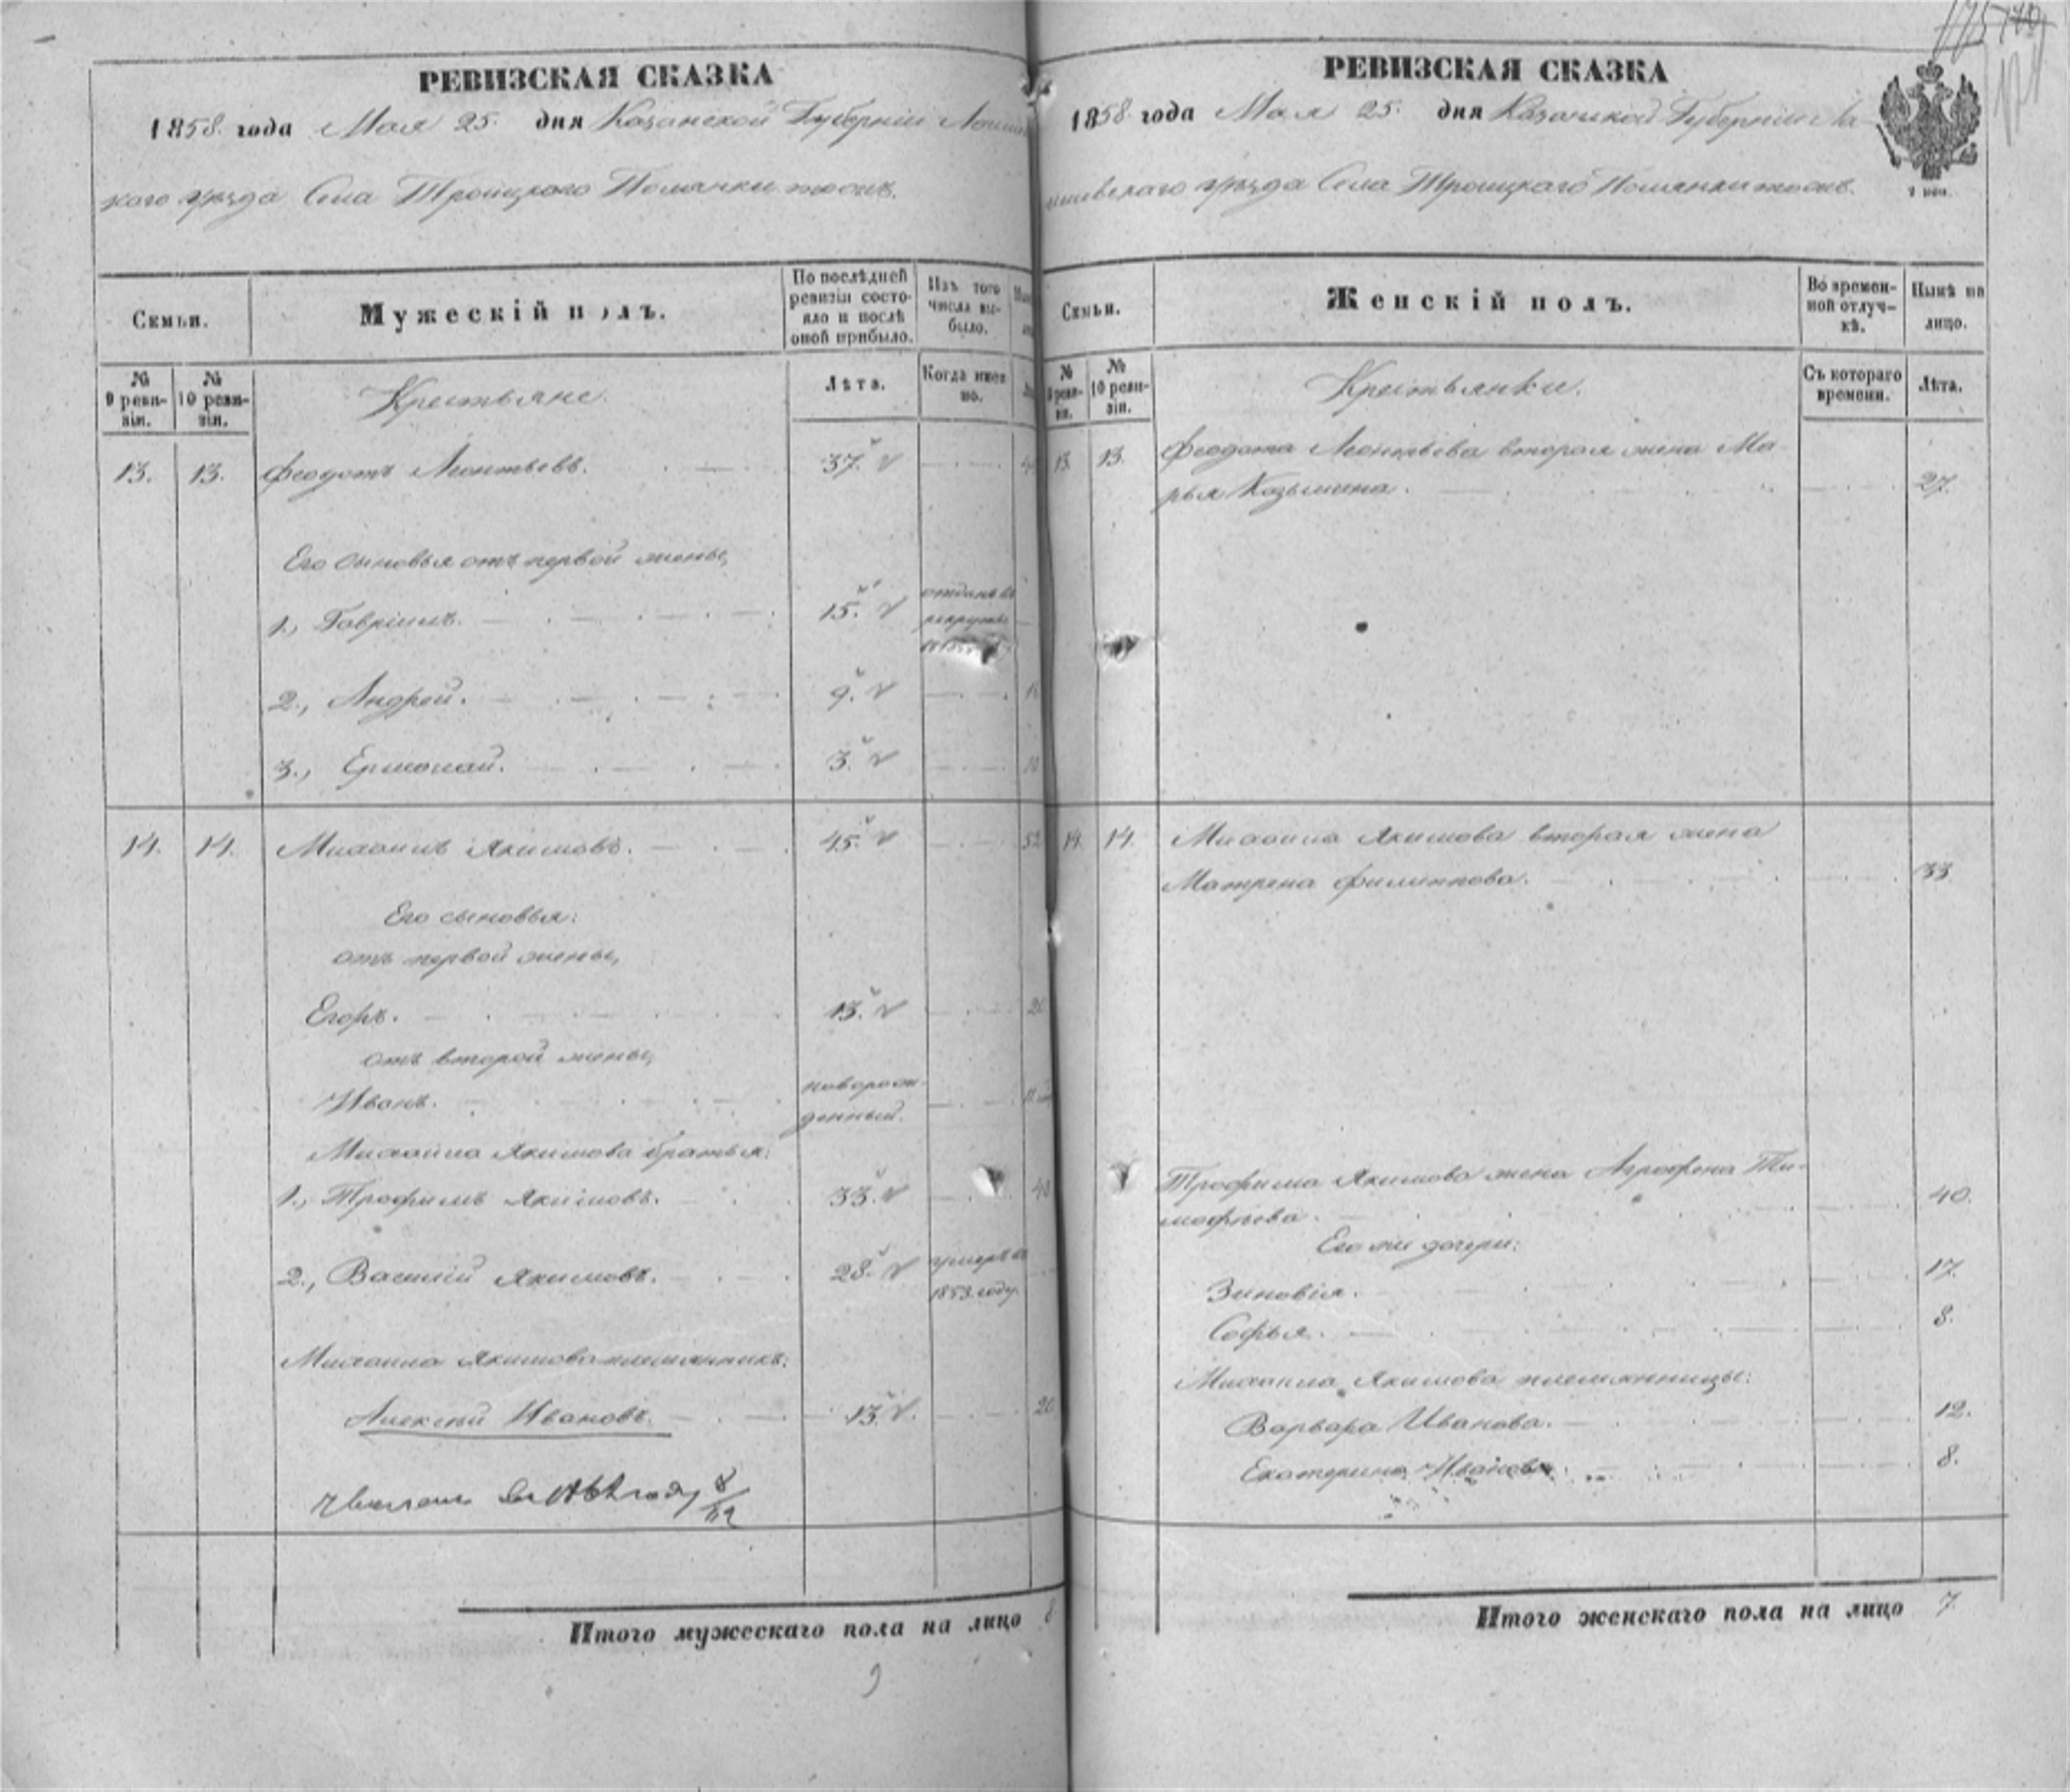 РЕВИЗСКАЯ СКАЗКА
1858. года Мая 25. дня Казанской Губерніи
кого уѣзда Села Троицкого тожъ.
Семьи.
Мужескій полъ.
По послѣдней ревизіи состояло и послѣ оной прибыло.
Изъ того числа выбыло.
№ 9 ревизіи.
№ 10 ревизіи.
Крестьяне.
Лѣта.
Когда именно.
13. 13. Феодотъ Леонтьевъ. 37.
Его сыновья отъ первой жены,
1., Гаврiилъ. 15. отданъ въ рекруты
2., Андрей. 9.
3., Ермолай. 3.
14. 14. Михаилъ Якимовъ. 45. 52
Его сыновья:
отъ первой жены,
Егоръ. 13. 20
отъ второй жены,
Иванъ. новорожденный.
Михаила Якимова братья:
1., Трофимъ Якимовъ. 33. 40
2., Василій Якимовъ. 28. умеръ въ 1853. году.
Михаила Якимова племянникъ:
Алексѣй Ивановъ. 13. 20
Итого мужескаго пола на лицо 8
9
РЕВИЗСКАЯ СКАЗКА
1858. года Мая 25. дня Казанской Губерніи Ла-
ишевскаго уѣзда Села Троицкаго тожъ.
Семьи.
Женскій полъ.
Во временной отлучкѣ.
Нынѣ на лицо.
№ 9 ревизіи.
№ 10 ревизіи.
Крестьянки.
Съ котораго времени.
Лѣта.
13. 13. Феодота Леонтьева вторая жена Ма-
рья Козьмина. 27.
14. 14. Михаила Якимова вторая жена
Матрена Филиппова. 33
Трофима Якимова жена Аграфена Ти-
мофѣева. 40.
Его же дочери:
Зиновія. 17.
Софья. 8.
Михаила Якимова племянницы:
Варвара Иванова. 12.
Екатерина Иванова. 8.
Итого женскаго пола на лицо 7.